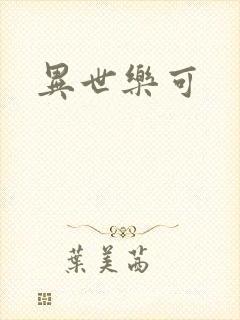 異世樂可
葉美茜